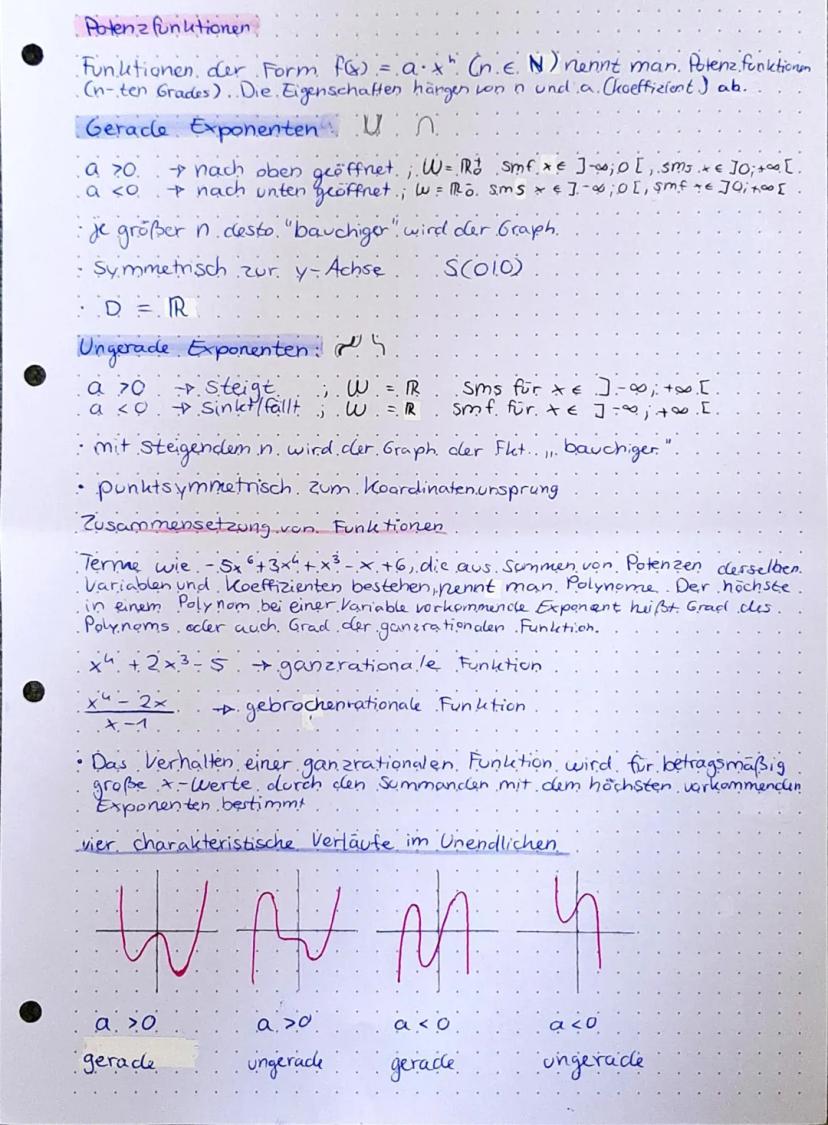 Potenzfunktionen
Funktionen der Form f(x) = a · xⁿ (n ∈ N) nennt man Potenzfunktionen
(n-ten Grades). Die Eigenschaften hängen von n und a (Koeffizient) ab.
Gerade Exponenten
a > 0 → nach oben geöffnet ; W = ℝ₀⁺ smf x ∈ ]-∞;0[, sms x ∈ ]0;+∞[.
a < 0 → nach unten geöffnet ; W = ℝ₀⁻ sms x ∈ ]-∞;0[, smf x ∈ ]0;+∞[
· je größer n desto "bauchiger" wird der Graph.
· Symmetrisch zur y-Achse S(0|0)
· D = ℝ
Ungerade Exponenten:
a > 0 → steigt ; W = ℝ sms für x ∈ ]-∞;+∞[
a < 0 → sinkt/fällt ; W = ℝ smf für x ∈ ]-∞;+∞[
· mit steigendem n wird der Graph der Fkt. „bauchiger"
• punktsymmetrisch zum Koordinatenursprung
Zusammensetzung von Funktionen
Terme wie -5x⁶+3x⁴+x³-x+6, die aus Summen von Potenzen derselben
Variablen und Koeffizienten bestehen, nennt man Polynome. Der höchste
in einem Polynom bei einer Variable vorkommende Exponent heißt Grad des
Polynoms oder auch Grad der ganzrationalen Funktion.
x⁴ + 2x³ - 5 → ganzrationale Funktion
x⁴ - 2x
x - 1 → gebrochenrationale Funktion
• Das Verhalten einer ganzrationalen Funktion wird für betragsmäßig
große x-Werte durch den Summanden mit dem höchsten vorkommenden
Exponenten bestimmt
vier charakteristische Verläufe im Unendlichen
a > 0 a > 0 a < 0 a < 0
gerade ungerade gerade ungerade